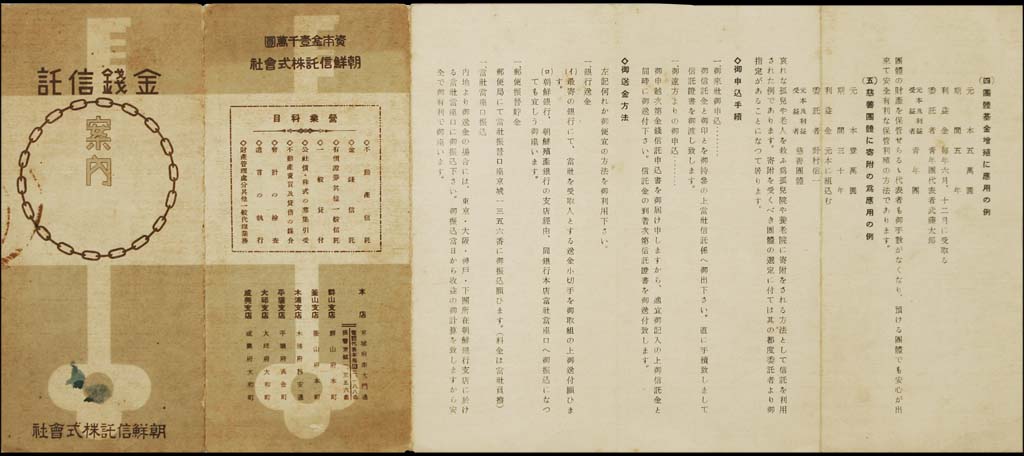 (四)團體基金增殖に應用の例
元本 五萬圓
期間 五年
利益金 毎年六月、十二月に受取る
委託者 青年團代表者武藤太郎
元本及利益
受益者 青年團
團體の財産を保管せらるゝ代表者も御手數がなくなり、預ける團體でも安心が出
來て安全有利な保管利殖の方法であります。
(五)慈善團體に寄附の爲應用の例
元本 壹萬圓
期間 三十年
利益金 元本に組込む
委託者 野村信一
元本及利益
受益者 慈善團體
哀れな孤兒や老人を救ふ爲孤兒院や養老院に寄附をされる方法として信託を利用
された例であります。寄附を受くべき團體の選定に付ては其の都度委託者より御
指定があることになつて居ります。
◇御申込手續
一御來社御申込……
御信託金と御印とを御持參の上當社信託係へ御出下さい。直に手續致しまして
信託證書を御渡し致します。
一御遠方よりの御申込……
御申越次第金錢信託申込書を御届け申しますから、適宜御記入の上御信託金と
同時に御送付下さい。信託金の到着次第信託證書を御送付致します。
◇御送金方法
左記何れか御便宜の方法を御利用下さい。
一銀行送金
(イ)最寄の銀行にて、當社を受取人とする送金小切手を御取組の上御送付願ひま
す。
(ロ)朝鮮銀行、朝鮮殖産銀行の支店經由、同銀行本店當社當座口へ御振込になつ
ても宜しう御座います。
一郵便振替貯金
郵便局にて當社振替口座京城一三五六番に御振込願ひます。(料金は當社負擔)
一當社當座口振込
内地より御送金の場合には、東京・大阪・神戸・下關所在朝鮮銀行支店に於け
る當社當座口に御振込下さい。御振込當日から收益の御計算を致しますから安
全で御有利で御座います。
資本金壹千萬圓
朝鮮信託株式會社
營業科目
◇不動産信託
◇金錢信託
◇有價證券其他一般信託
◇一般貸付
◇公社債・株式の募集引受
◇不動産賣買及貸借の媒介
◇會計の檢査
◇遺言の執行
◇財産管理處分其他一般代理業務
本店 京城府南大門通
振替京城一三五六番
群山支店 群山府本町
釜山支店 釜山府本町
木浦支店 木浦府務安通
平壤支店 平壤府黄金町
大邱支店 大邱府大和町
咸興支店 咸興府大和町
金錢信託
案内
朝鮮信託株式會社